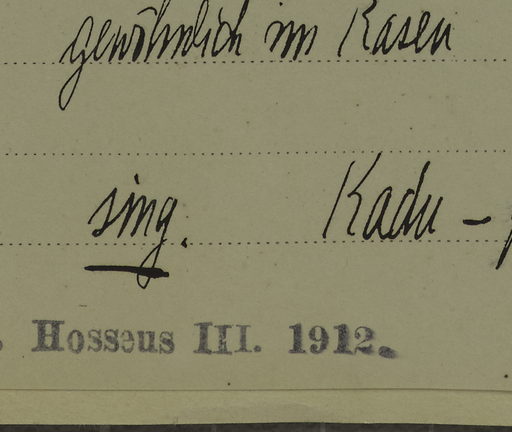 gewöhnlich im Rasen
sing. Kadu -
. Hosseus III. 1912.